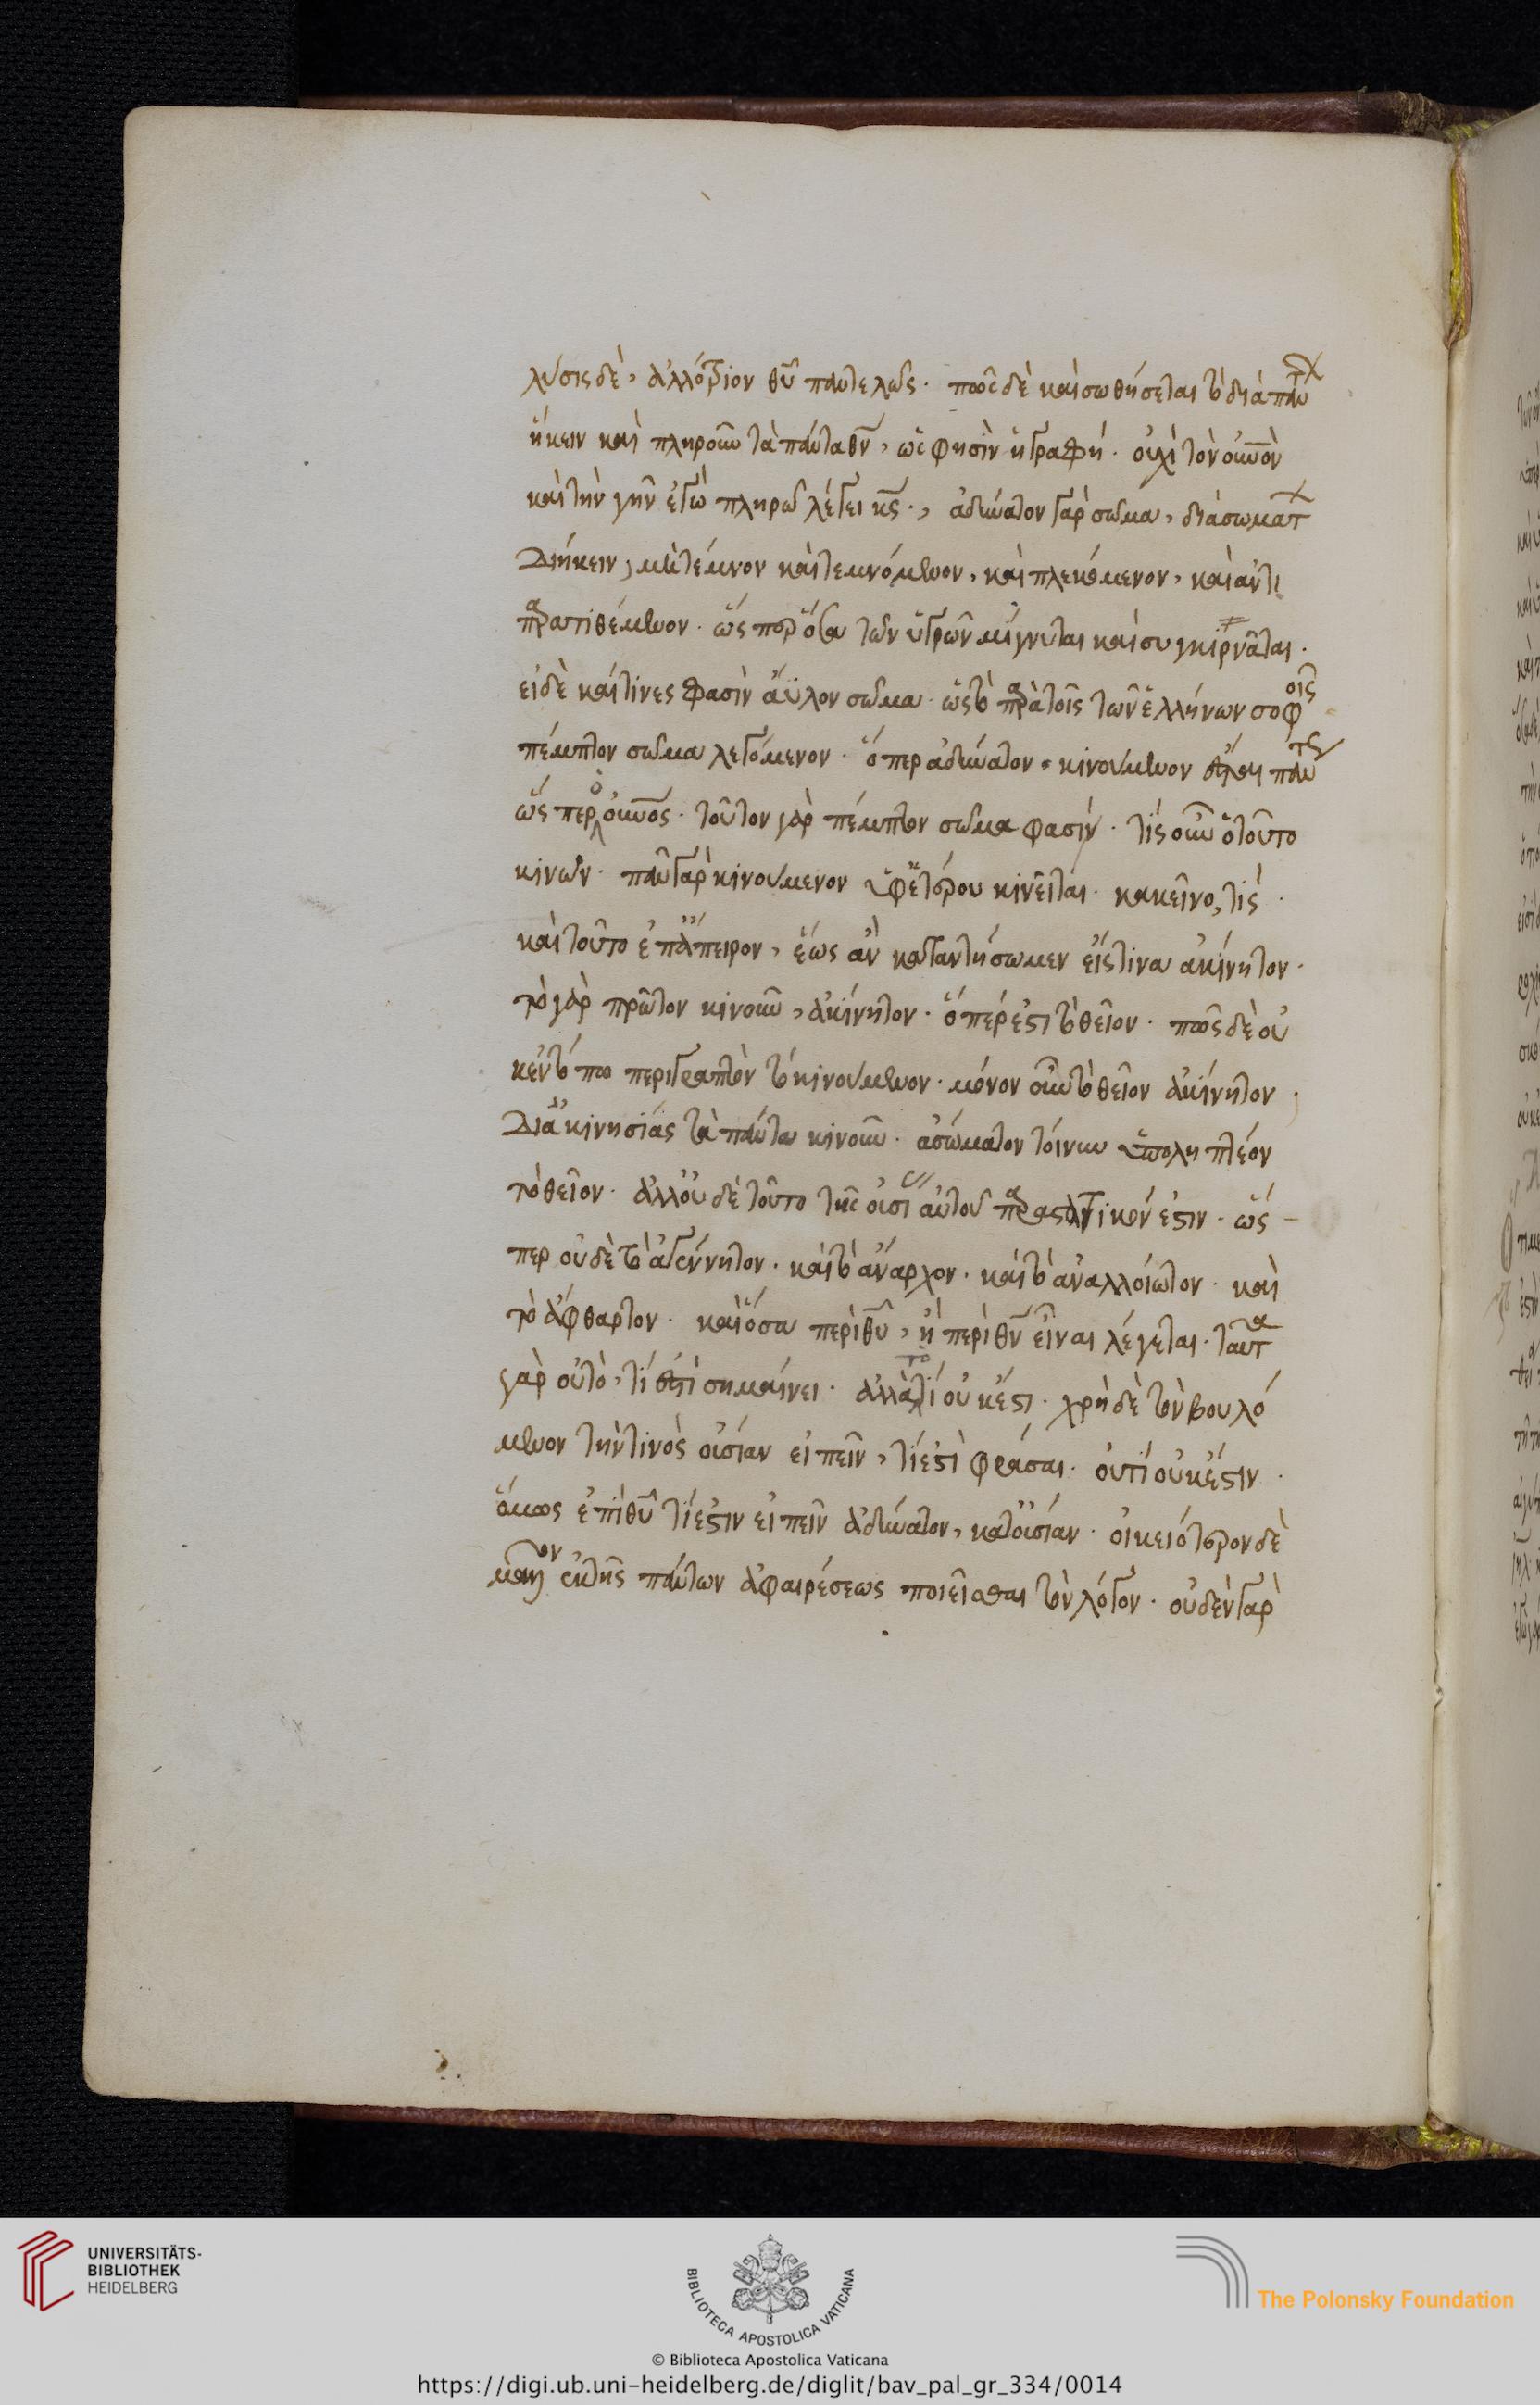 λύσις δὲ, ἀλλότριον θῡ παντελῶς. πῶς δὲ καὶ σωθήσεται τὸ διὰ πάντων
ἥκειν καὶ πληροῦν τὰ πάντα θν̄, ὥς φησὶν ἡ γραφή. οὐχὶ τὸν οὐνὸν
καὶ τὴν γῆν ἐγὼ πληρῶ λέγει κς̄., ἀδύνατον γὰρ σῶμα, διὰ σωμάτων
διήκειν, μὴ τέμνον καὶ τεμνόμενον, καὶ πλεκόμενον, καὶ ἀντι
παρατιθέμενον. ὥσπερ ὅσα τῶν ὑγρῶν μίγνυται καὶ συγκιρνᾶται.
εἰ δὲ καί τινές φασὶν ἄϋλον σῶμα. ὡς τὸ παρὰ τοῖς τῶν ἑλλήνων σοφοῖς
πέμπτον σῶμα λεγόμενον. ὅπερ ἀδύνατον. κινούμενον ἔσται πάντως
ὥσπερ ὁ οὐνός. τοῦτον γὰρ πέμπτον σῶμα φασίν. τίς οὖν ὁ τοῦτο
κινῶν. πᾶν γὰρ κινούμενον ὑφ' ἑτέρου κινεῖται. κἀκεῖνο, τίς.
καὶ τοῦτο ἐπ' ἄπειρον, ἕως ἂν καταντήσωμεν εἴς τινα ἀκίνητον.
τὸ γὰρ πρῶτον κινοῦν, ἀκίνητον. ὅπέρ ἐστι τὸ θεῖον. πῶς δὲ οὐ
κ' ἐν τόπω περιγραπτὸν τὸ κινούμενον. μόνον οὖν τὸ θεῖον ἀκίνητον
δι' ἀκινησίας τὰ πάντα κινοῦν. ἀσώματον τοίνυν ὑποληπτέον
τὸ θεῖον. ἀλλ' οὐδὲ τοῦτο τῆς οὐσίας αὐτοῦ παραστατικόν ἐστιν. ὥσ
περ οὐδὲ τὸ ἀγέννητον. καὶ τὸ ἄναρχον. καὶ τὸ ἀναλλοίωτον. καὶ
τὸ ἄφθαρτον. καὶ ὅσα περὶ θῡ, ἢ περὶ θν̄ εἶναι λέγεται. ταῦτα
γὰρ οὐ τὸ, τί ἐστὶ σημαίνει. ἀλλὰ τὸ τί οὐκ ἔστι. χρὴ δὲ τὸν βουλό
μενον τήν τινος οὐσίαν εἰπεῖν, τί ἐστὶ φράσαι. οὐ τί οὐκ ἔστιν.
ὅμως ἐπὶ θῡ τί ἐστιν εἰπεῖν ἀδύνατον, κατ' οὐσίαν. οἰκειότερον δὲ
μᾶλλον ἐκ τῆς πάντων ἀφαιρέσεως ποιεῖσθαι τὸν λόγον. οὐδὲν γὰρ
UNIVERSITÄTS-
BIBLIOTHEK
HEIDELBERG
BIBLIOTECA APOSTOLICA VATICANA
The Polonsky Foundation
© Biblioteca Apostolica Vaticana
https://digi.ub.uni-heidelberg.de/diglit/bav_pal_gr_334/0014